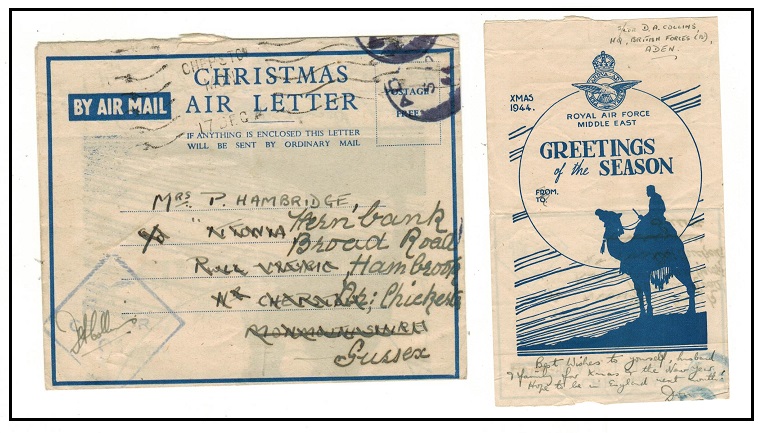 CHEPSTOW
17 DEC
CHRISTMAS
AIR LETTER
BY AIR MAIL
POSTAGE
FREE
IF ANYTHING IS ENCLOSED THIS LETTER
WILL BE SENT BY ORDINARY MAIL
MRS P. HAMBRIDGE
Fern'bank
Broad Road
Hambrook
Nr: Chichester
Sussex
D.A. COLLINS,
HQ, BRITISH FORCES (A),
ADEN.
XMAS
1944.
ROYAL AIR FORCE
MIDDLE EAST
GREETINGS
of the SEASON
FROM.
TO.
Best Wishes to yourself, husband
& family for Xmas & the New Year.
Hope to be in England next month!